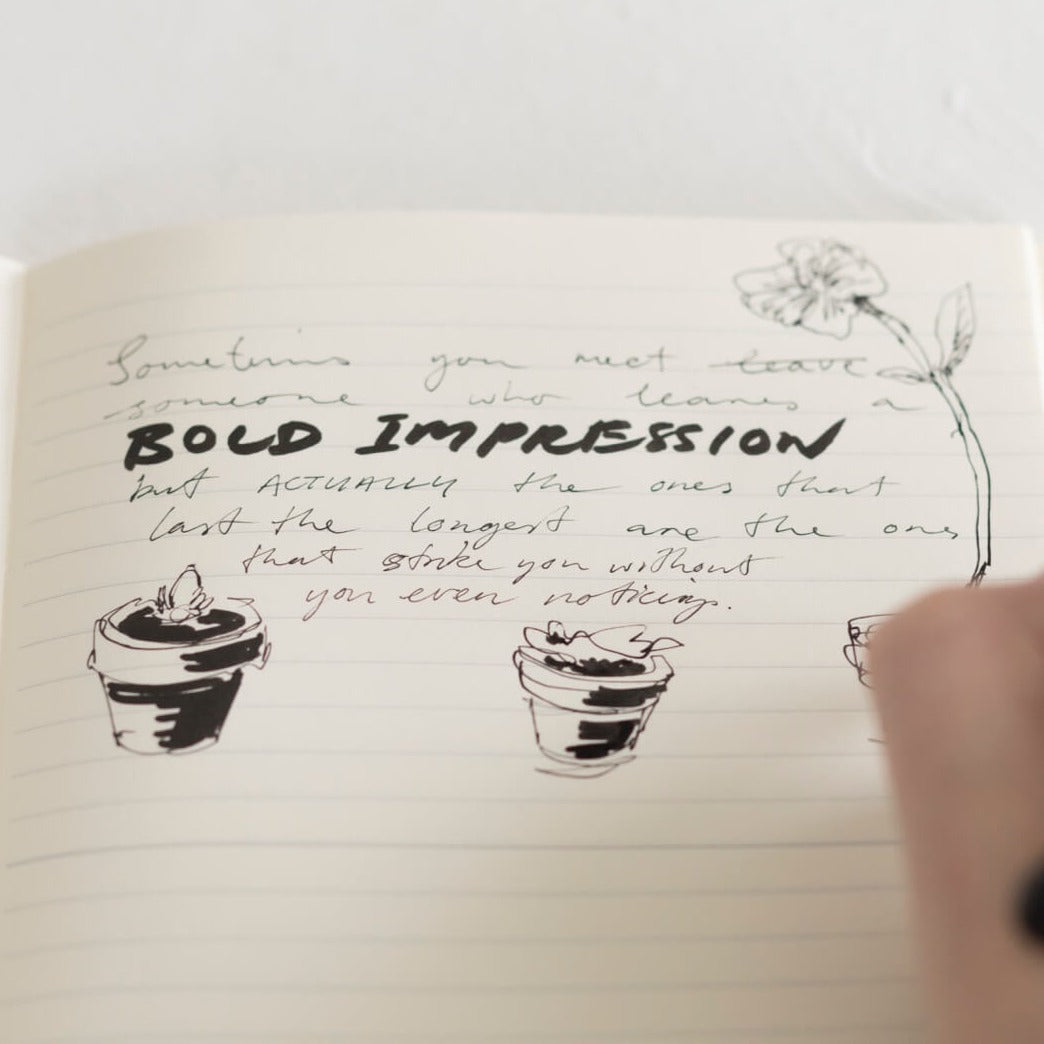 Sometimes you meet leave
someone who leaves a
BOLD IMPRESSION
but ACTUALLY the ones that
last the longest are the ones
that strike you without
you even noticing.